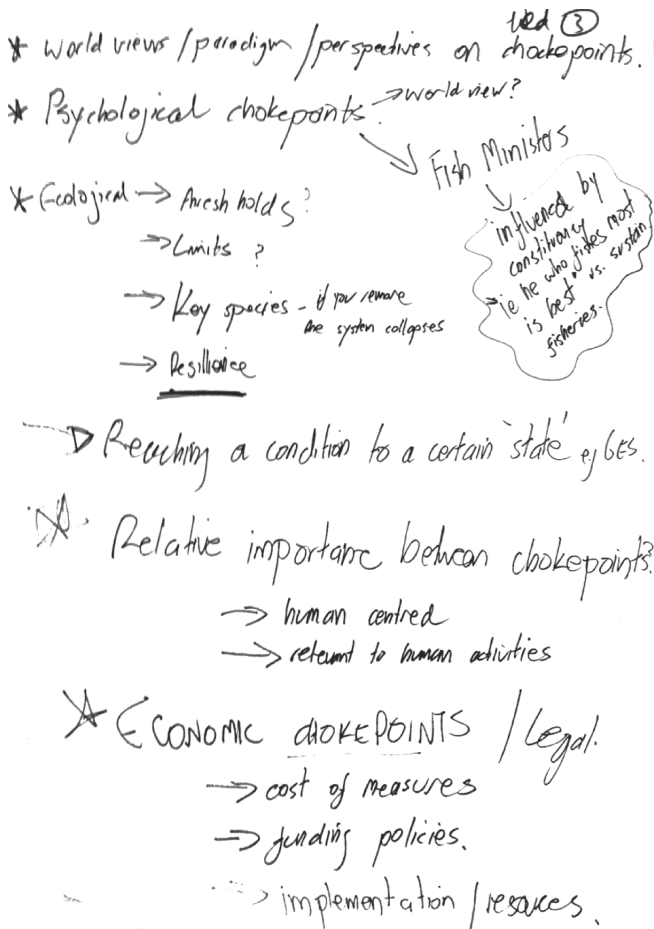 Wed ③
* World views / paradigm / perspectives on chockepoints.
* Psychological chokepoints. → world view?
→ Fish Ministers
→ influenced by
constituancy
→ ie he who fishes most
is best" vs. sustain
fisheries.
* Ecological → thresholds?
→ Limits ?
→ Key species - if you remove
the system collapses
→ Resilliance
→ Reaching a condition to a certain 'state' eg GES.
* Relative importance between chokepoints?
→ human centred
→ relevant to human activities
* ECONOMIC CHOKEPOINTS / Legal.
→ cost of measures
→ funding policies.
→ implementation / resources.